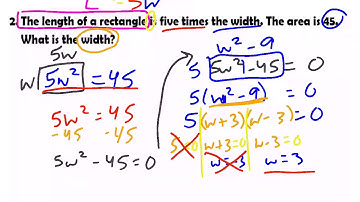 L = 5w
2. The length of a rectangle is five times the width. The area is 45.
What is the width?
5w
w 5w² = 45
5w² = 45
-45 -45
5w² - 45 = 0
w² - 9
5 5w² - 45 = 0
5(w² - 9) = 0
5(w+3)(w-3) = 0
5=0 w+3=0 w-3=0
w=-3 w=3